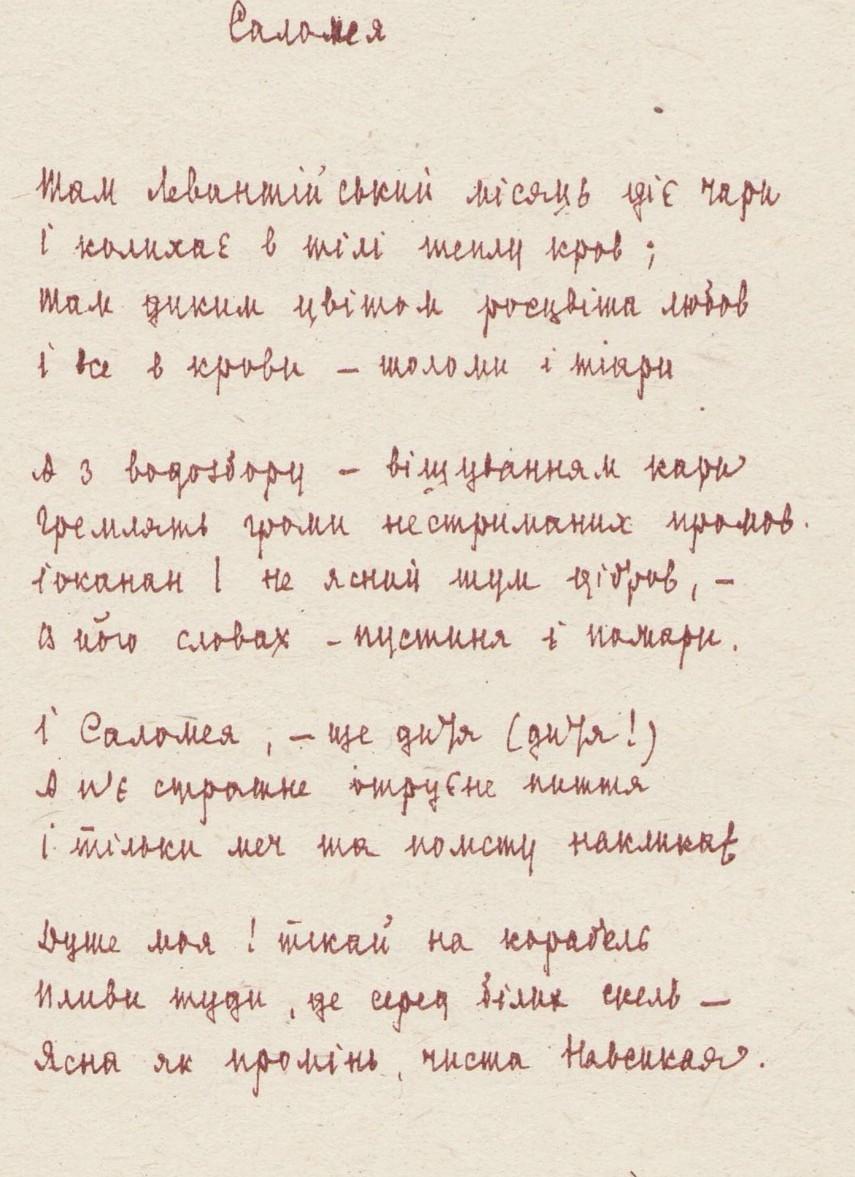 Саломея
Там левантійський місяць діє чари
І колихає в тілі теплу кров ;
Там диким цвітом росцвіта любов
І все в крови – шоломи і тіари
А з водозбору – віщуванням кари
Гремлять громи нестриманих промов.
Іоканан ! не ясний шум дібров, –
В його словах – пустиня і пожари.
І Саломея , – ще дитя (дитя!)
А п'є страшне отруєне пиття
І тільки меч та помсту накликає
Душе моя ! тікай на корабель
Пливи туди , де серед білих скель –
Ясна як промінь, чиста Навсикая.